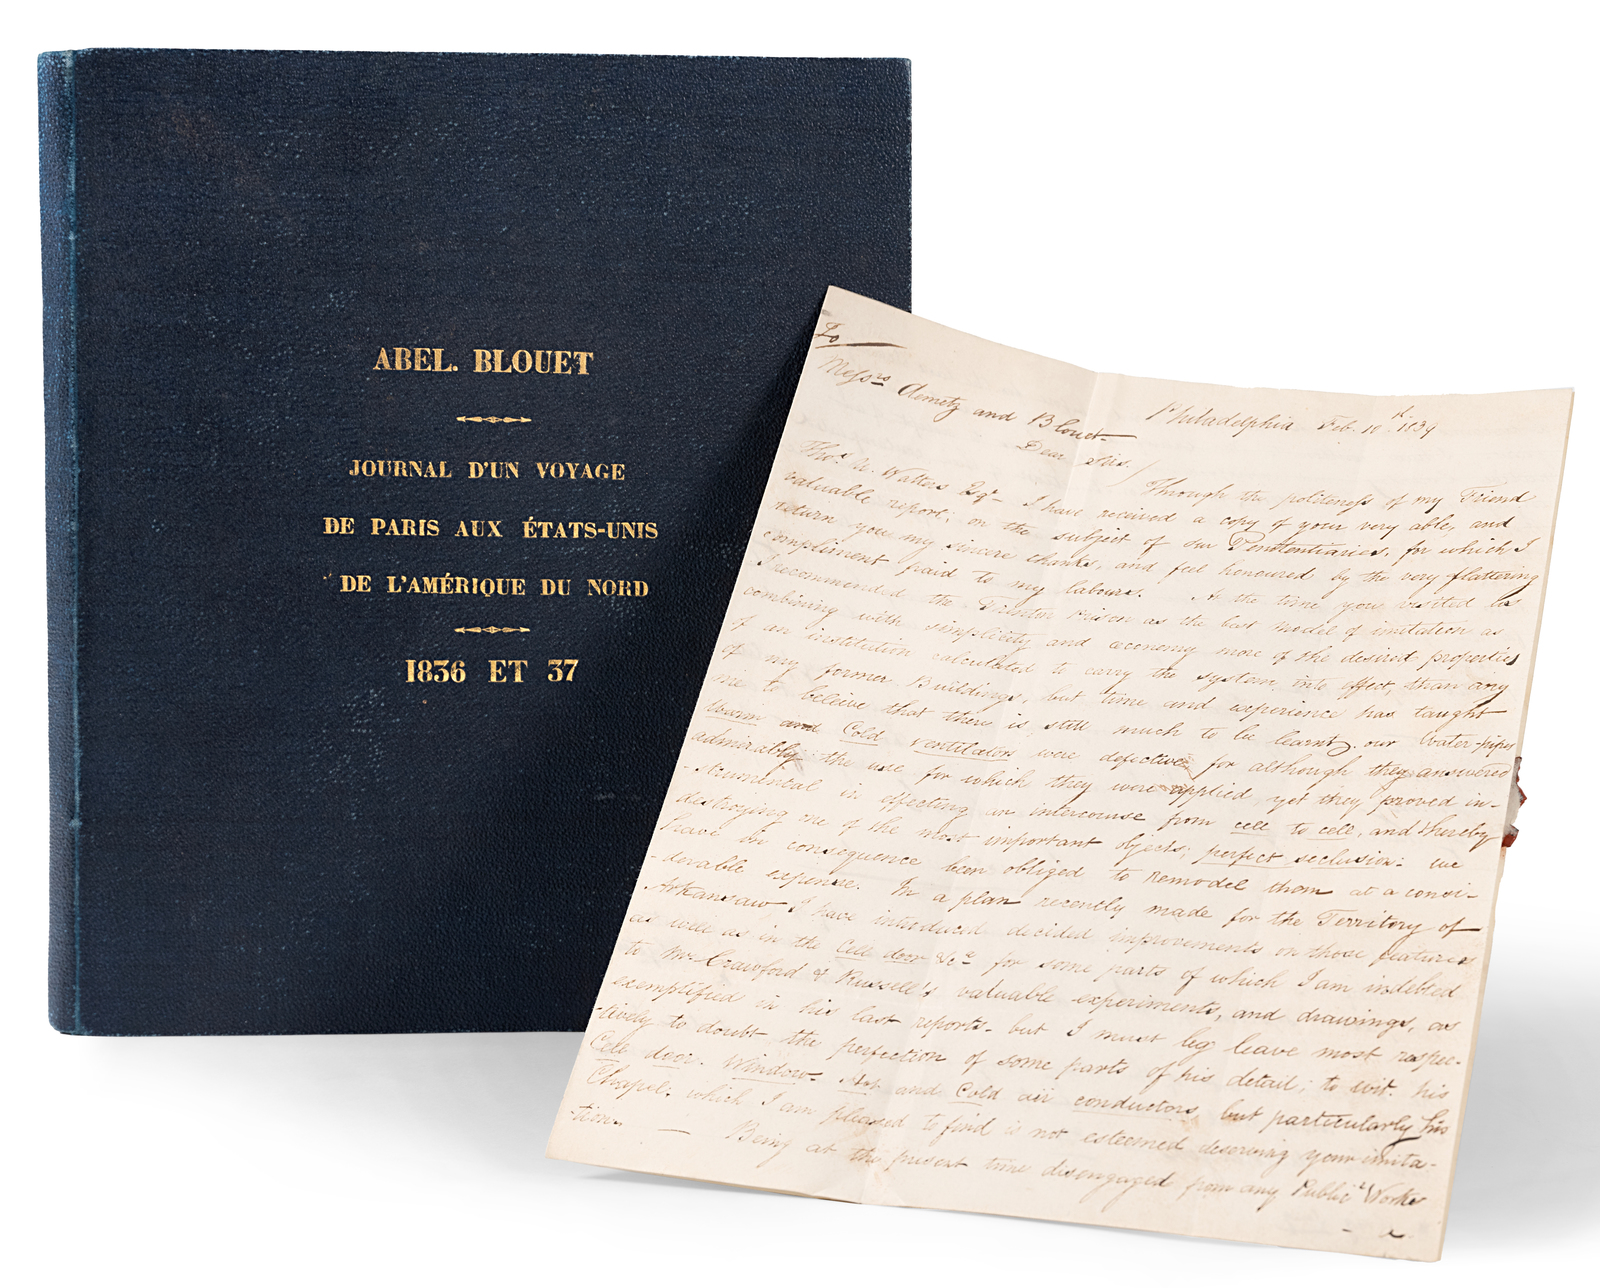 ABEL. BLOUET
JOURNAL D'UN VOYAGE
DE PARIS AUX ÉTATS-UNIS
DE L'AMÉRIQUE DU NORD
1836 ET 37
To
Messrs Demetz and Blouet
Philadelphia Feb. 10th 1839
Dear Sirs./
Through the politeness of my Friend
Thos. U. Walters Esqr I have received a copy of your very able, and
valuable report; on the subject of our Penetentiaries, for which I
return you my sincere thanks, and feel honoured by the very flattering
compliment paid to my labours. At the time you visited us
I recommended the Trenton Prison as the best model of imitation as
combining with simplicity and œconomy more of the desired properties
of an institution calculated to carry the system into effect, than any
of my former Buildings, but time and experience has taught
me to beleive that there is still much to be learnt. our Water-pipes
Warm and Cold ventilators were defective for although they answered
admirably the use for which they were applied yet they proved in-
-strumental in effecting an intercourse from cell to cell, and thereby
destroying one of the most important objects; perfect seclusion: we
have in consequence been obliged to remodel them at a consi-
-derable expense. In a plan recently made for the Territory of
Arkansaw I have introduced decided improvements on those features
as well as in the Cell door &ca for some parts of which I am indebted
to Mr Crawford & Russell's valuable experiments, and drawings, as
exemplified in his last reports - but I must beg leave most respec-
-tively to doubt the perfection of some parts of his detail; to wit. his
Cell door. Window. Hot and Cold air conductors, but particularly his
Chapel, which I am pleased to find is not esteemed deserving your imita-
-tion. — Being at the present time disengaged from any Public Works